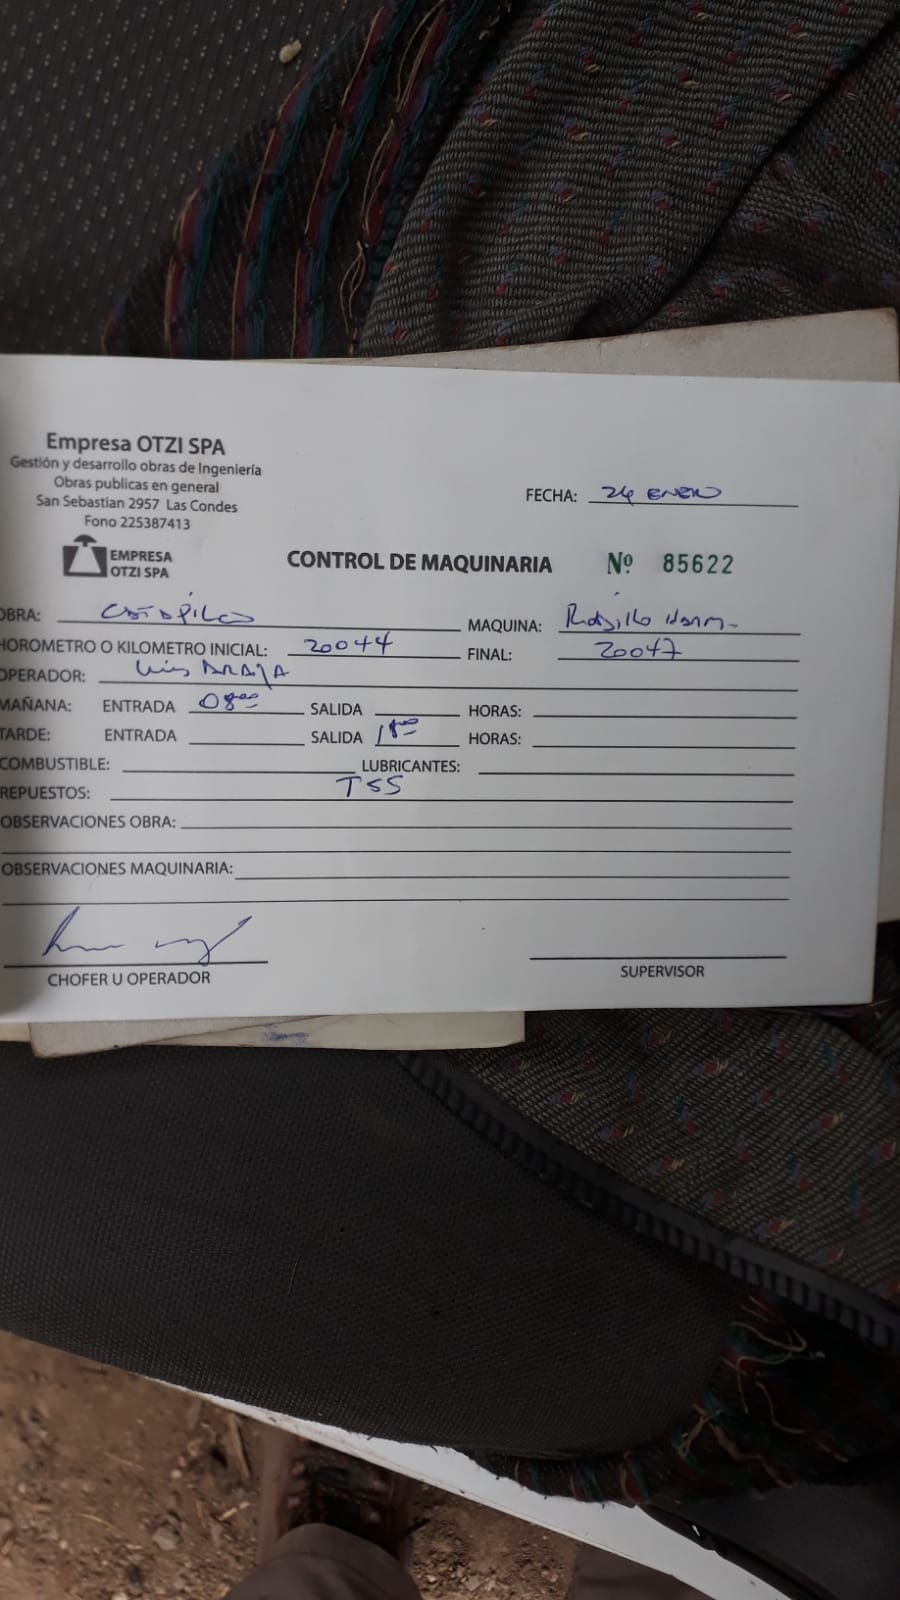 Empresa OTZI SPA
Gestión y desarrollo obras de Ingeniería
Obras publicas en general
San Sebastian 2957 Las Condes
Fono 225387413
EMPRESA
OTZI SPA
FECHA: 24 ENERO
CONTROL DE MAQUINARIA Nº 85622
OBRA: MAQUINA: Rodillo Hamm-
HOROMETRO O KILOMETRO INICIAL: 20044 FINAL: 20047
OPERADOR: Luis ARAYA
MAÑANA: ENTRADA 08⁰⁰ SALIDA HORAS:
TARDE: ENTRADA SALIDA HORAS:
COMBUSTIBLE: LUBRICANTES:
REPUESTOS: TSS
OBSERVACIONES OBRA:
OBSERVACIONES MAQUINARIA:
CHOFER U OPERADOR SUPERVISOR